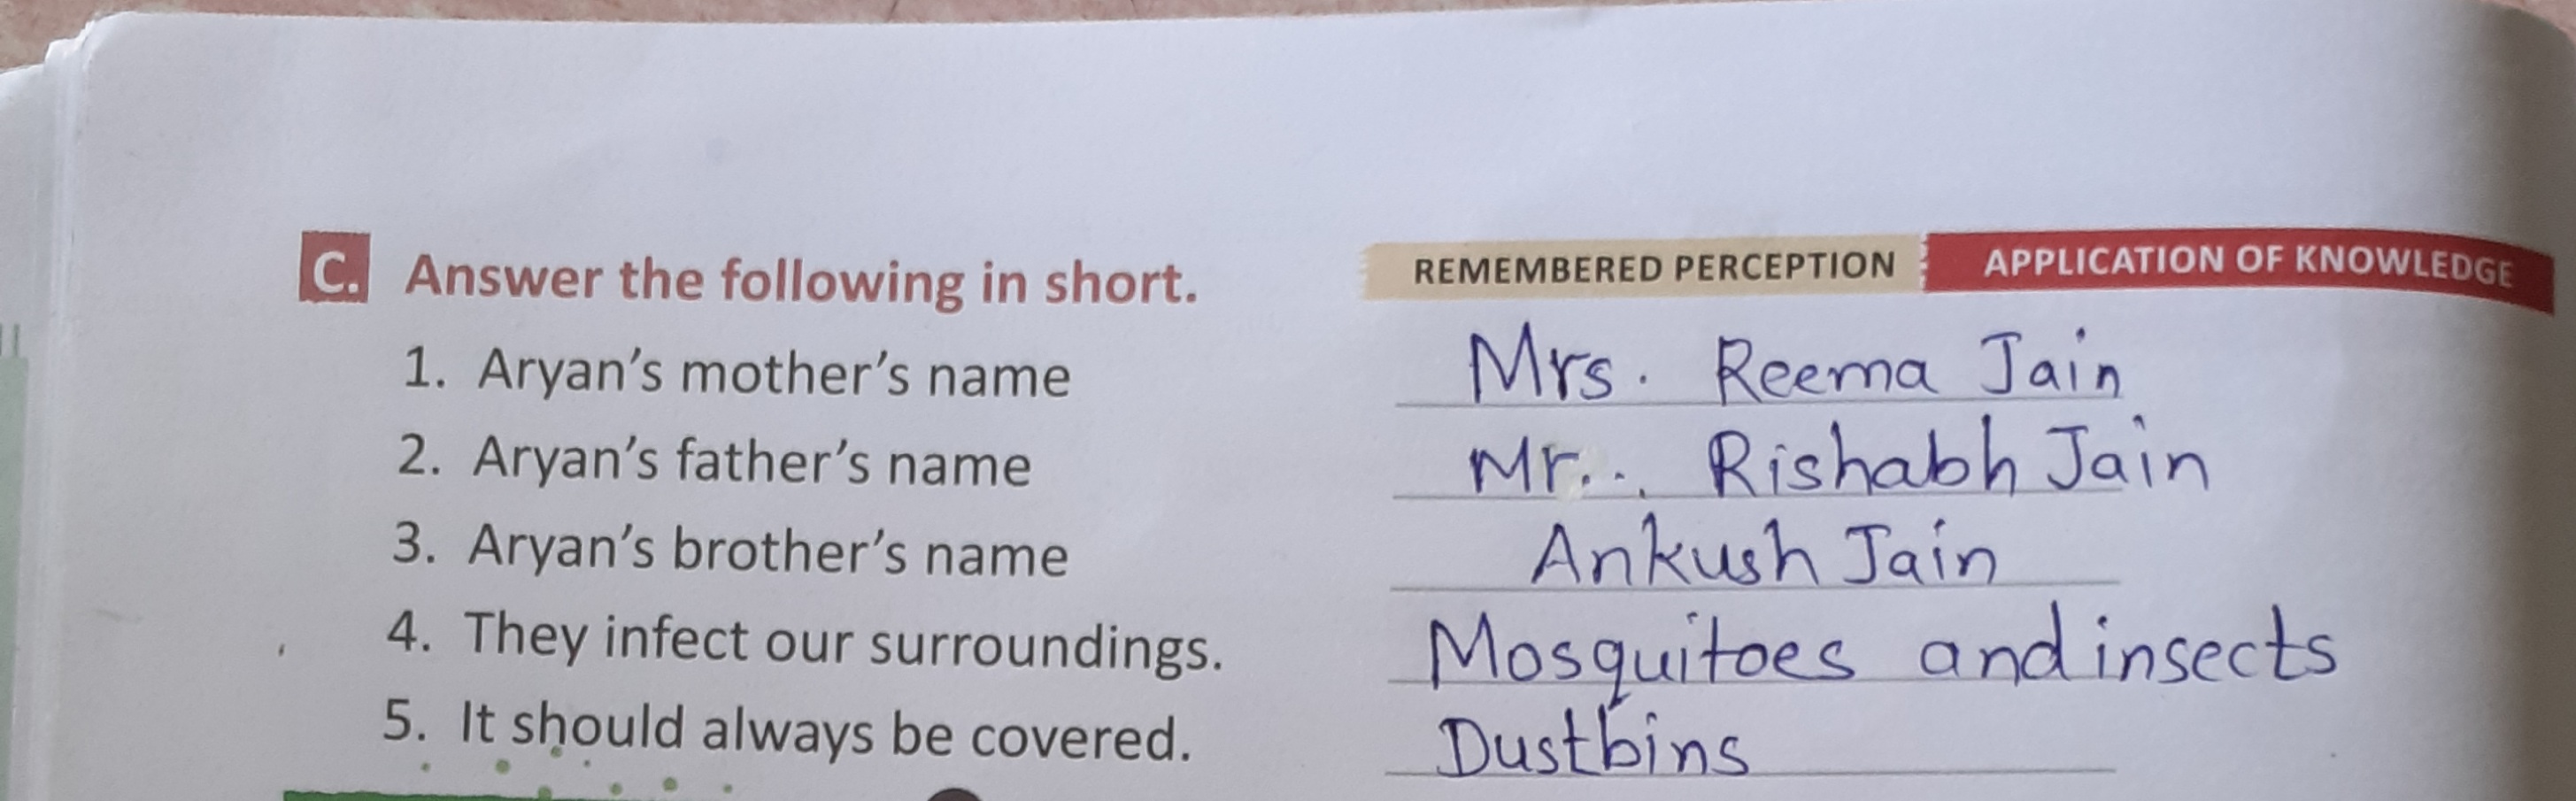 C. Answer the following in short. REMEMBERED PERCEPTION APPLICATION OF KNOWLEDGE
1. Aryan's mother's name Mrs. Reema Jain
2. Aryan's father's name Mr. Rishabh Jain
3. Aryan's brother's name Ankush Jain
4. They infect our surroundings. Mosquitoes and insects
5. It should always be covered. Dustbins